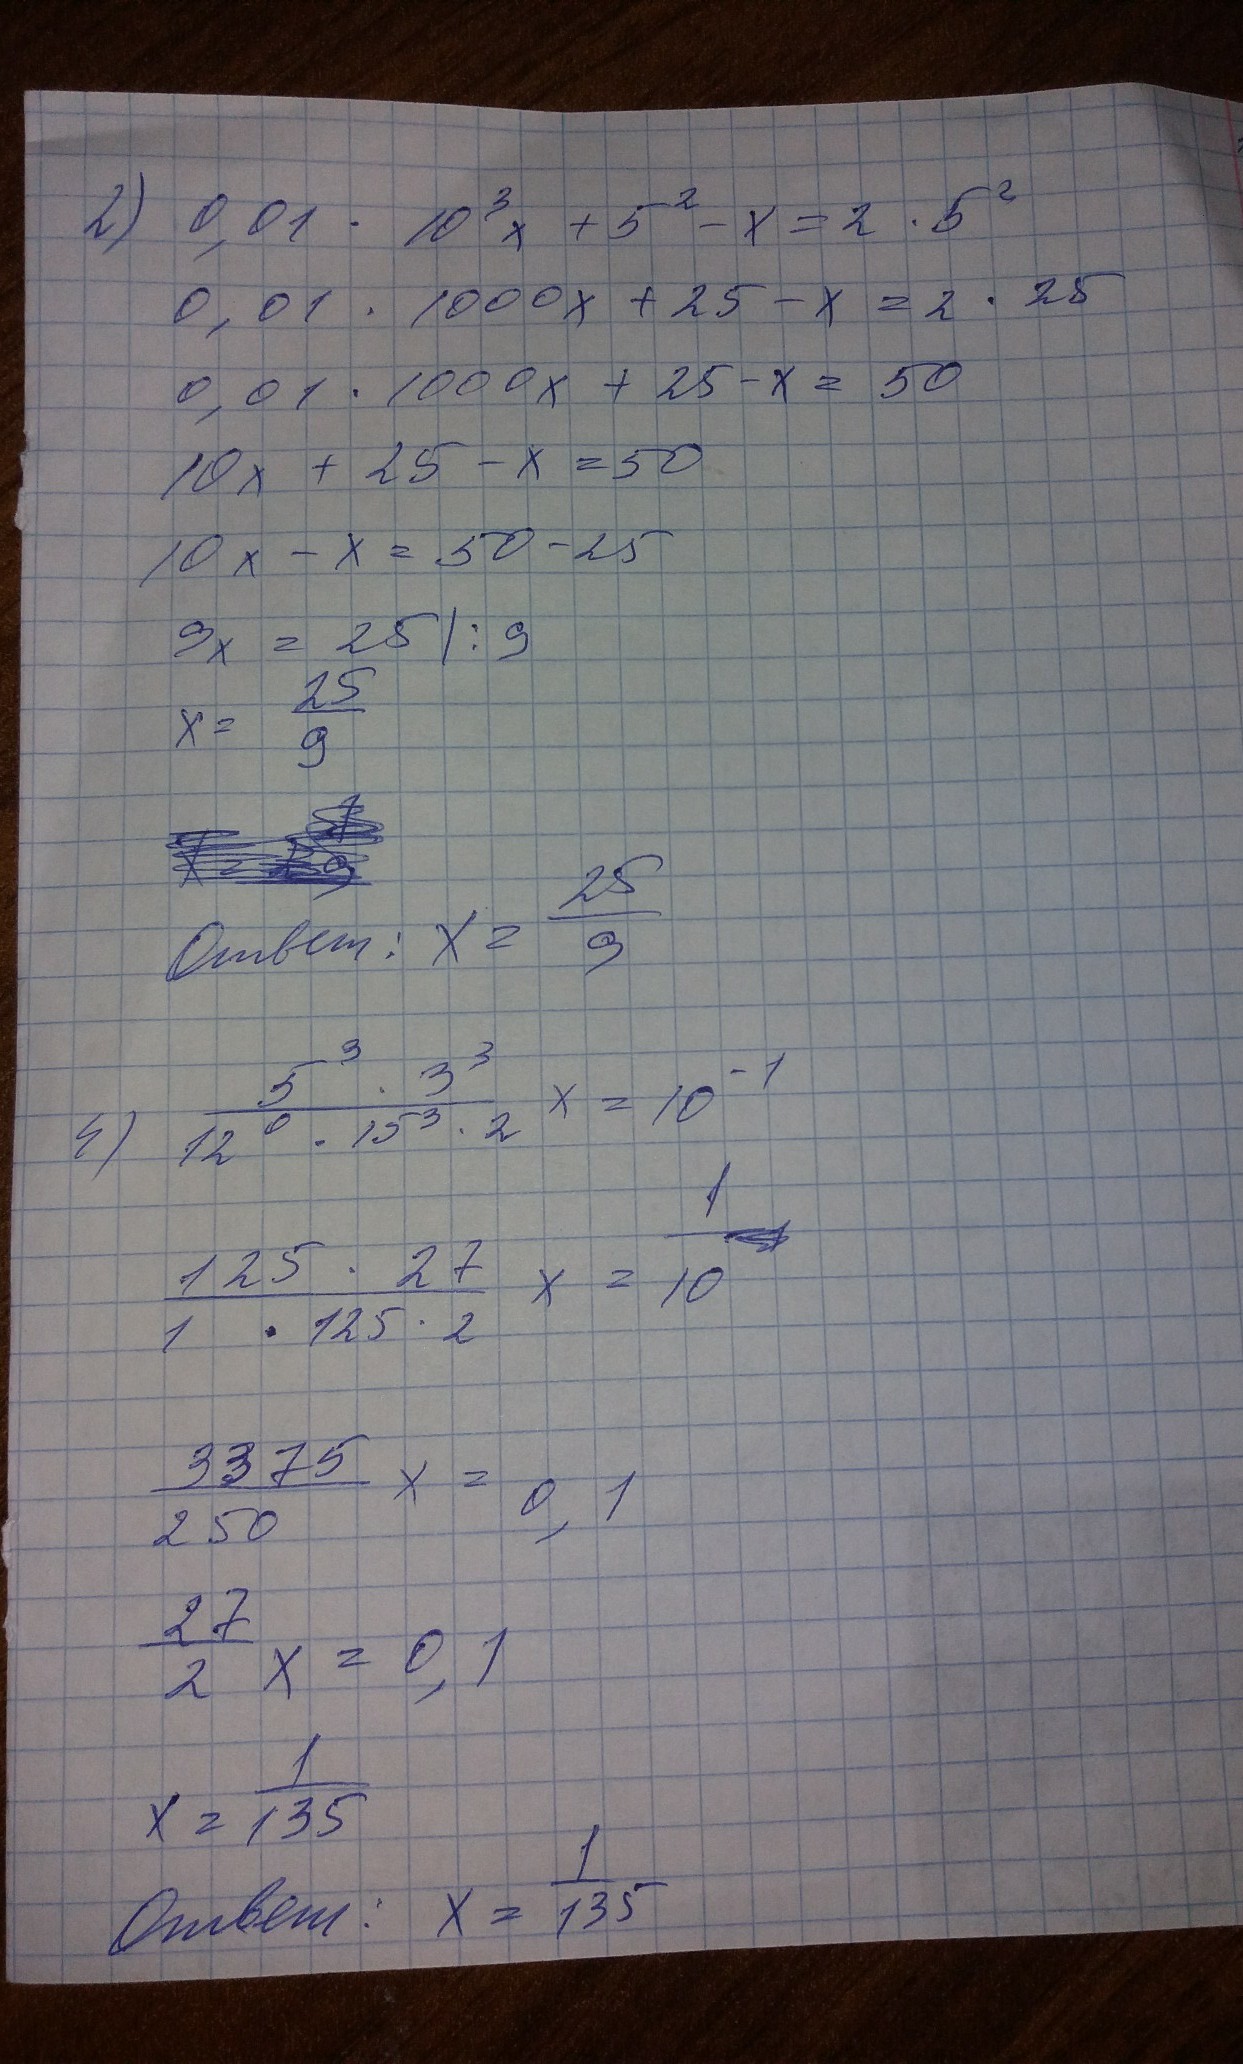 2) 0,01 · 10³x + 5² - x = 2 · 5²
0,01 · 1000x + 25 - x = 2 · 25
0,01 · 1000x + 25 - x = 50
10x + 25 - x = 50
10x - x = 50 - 25
9x = 25 | : 9
x = 25/9
Ответ: x = 25/9
4) (5³ · 3³)/(12⁰ · 15³ · 2) x = 10⁻¹
(125 · 27)/(1 · 125 · 2) x = 1/10
3375/250 x = 0,1
27/2 x = 0,1
x = 1/135
Ответ: x = 1/135